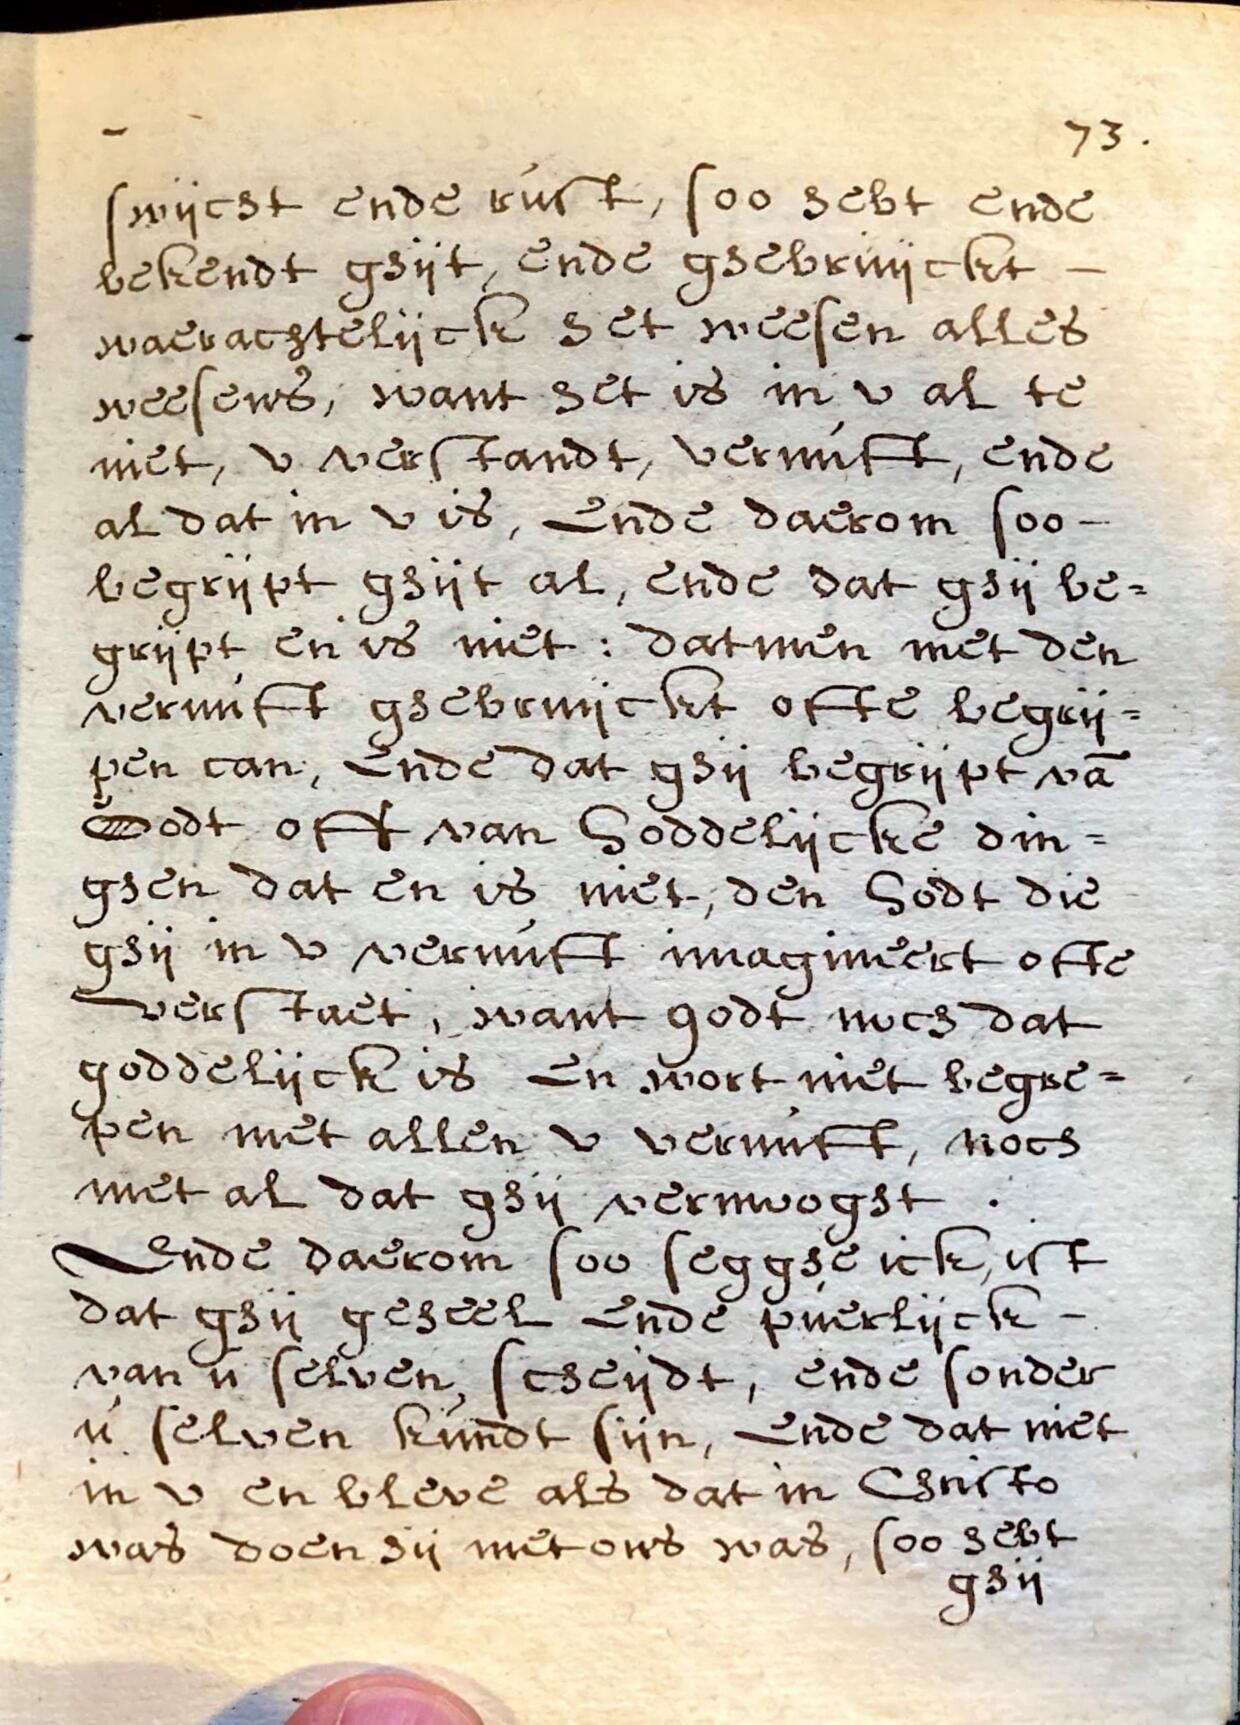 73.
swijcht ende rust, soo hebt ende
bekendt ghijt, ende ghebruijckt -
waerachtelijck het weesen alles
weesens, want het is in v al te
niet, v verstandt, vernúft, ende
al dat in v is, Ende daerom soo -
begrijpt ghijt al, ende dat ghij be=
grijpt en is niet: datmen met den
vernúft ghebruijckt ofte begrij=
pen can, Ende dat ghij begrijpt vā
Godt oft van Goddelijcke din=
ghen dat en is niet, den Godt die
ghij in v vernúft imagineert ofte
verstaet, want godt noch dat
goddelijck is En wort niet begre=
pen met allen v vernúft, noch
met al dat ghij vermooght.
Ende daerom soo segghe ick, ist
dat ghij geheel Ende púerlijck -
van ú selven, scheijdt, ende sonder
ú selven kúndt sijn, Ende dat niet
in v en bleve als dat in Christo
was doen hij met ons was, soo hebt
ghij